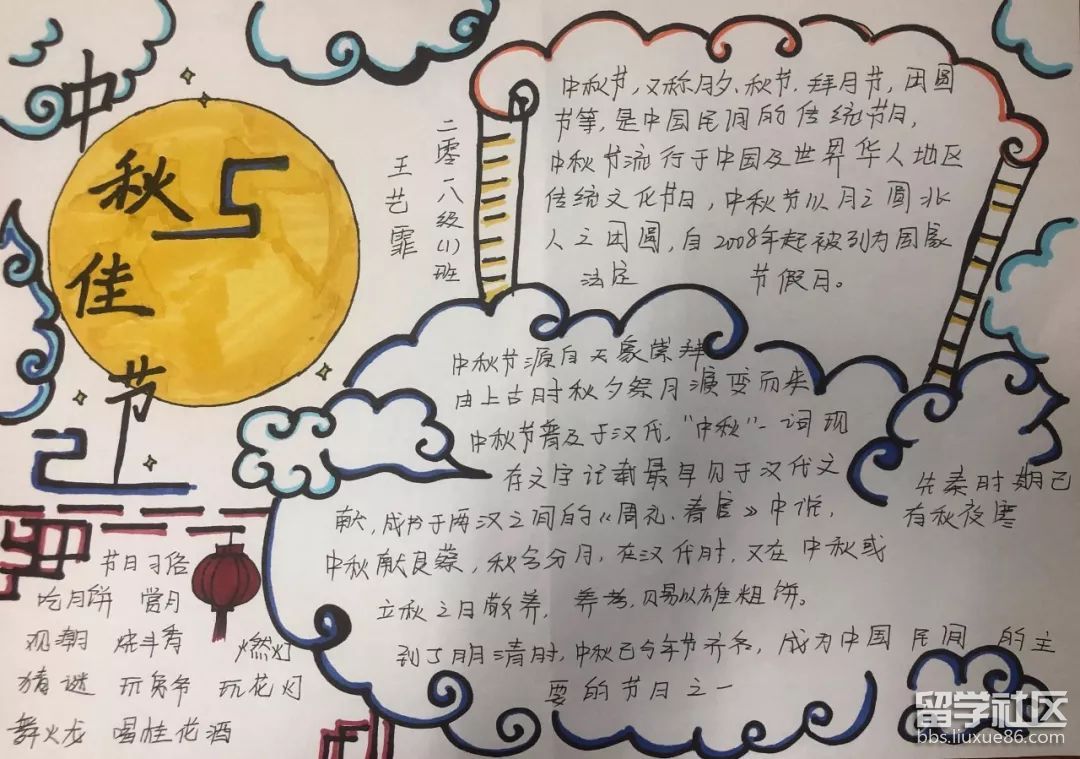 中
秋
佳
节
王艺霏
二零一八级(1)班
中秋节,又称月夕、秋节、拜月节,团圆
节等,是中国民间的传统节日,
中秋节流行于中国及世界华人地区
传统文化节日,中秋节以月之圆兆
人之团圆,自2008年起被列为国家
法定 节假日。
中秋节源自天象崇拜
由上古时秋夕祭月演变而来
中秋节普及于汉代,"中秋"一词现
存文字记载最早见于汉代文
献,成书于两汉之间的《周礼、春官》中
中秋献良裘,秋分月,在汉代时,又在中秋或
立秋之日敬养,以雄粗饼。
到了明清时,中秋已年节,成为中国民间的主
要的节日之一
先秦时期已
有秋夜寒
节日习俗
吃月饼 赏月
观潮 烧斗香 燃灯
猜谜 玩兔爷 玩花灯
舞火龙 喝桂花酒
留学社区
bbs.liuxue86.com